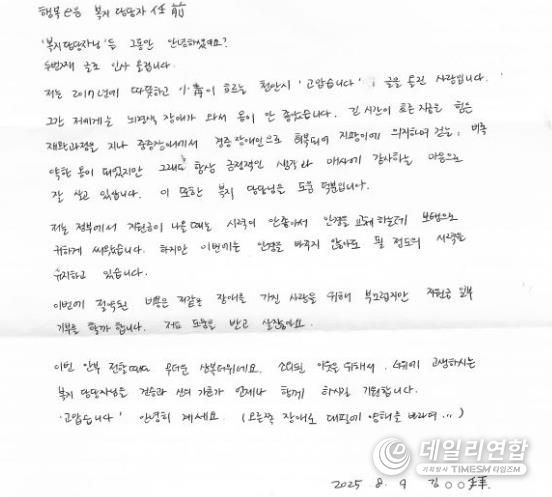 행복e음 복지 담당자 任前
'복지담당자님'들 그동안 안녕하셨어요?
두번째 글로 인사 올립니다.
저는 2017년에 따뜻하고 小靑이 흐르는 천안시 '고맙습니다' 글을 올린 사람입니다.
그간 저에게는 뇌경색 장애가 와서 몸이 안 좋았습니다. 긴 시간이 흐른 지금은 힘든
재활과정을 지나 중증장애에서 경증장애인으로 회복되어 지팡이에 의지하여 걷는, 비록
약한 몸이 되었지만 그래도 항상 긍정적인 생각과 매사에 감사하는 마음으로
잘 살고 있습니다. 이 또한 복지 담당님들 도움 덕분입니다.
저는 정부에서 지원금이 나올때는 시력이 안좋아서 안경을 교체하는데 보탬으로
귀하게 씌워졌습니다. 하지만 이번에는 안경을 바꾸지 않아도 될 정도의 시력을
유지하고 있습니다.
이번에 절약된 비용은 저같은 장애를 가진 사람을 위해 부끄럽지만 지원금 일부
기부를 할까 합니다. 저도 도움을 받고 살잖아요.
이번 안부 전할때는 무더운 삼복더위에요. 소외된 이웃을 위해서, 더위에 고생하시는
복지 담당자님들 건승과 신의 가호가 언제나 함께 하시길 기원합니다.
'고맙습니다' 안녕히 계세요. (오른쪽 장애로 대필에 양해를 바라며...)
2025 8. 9 김○○拜.
데일리연합
기획탐사 TIMESM 타임즈M